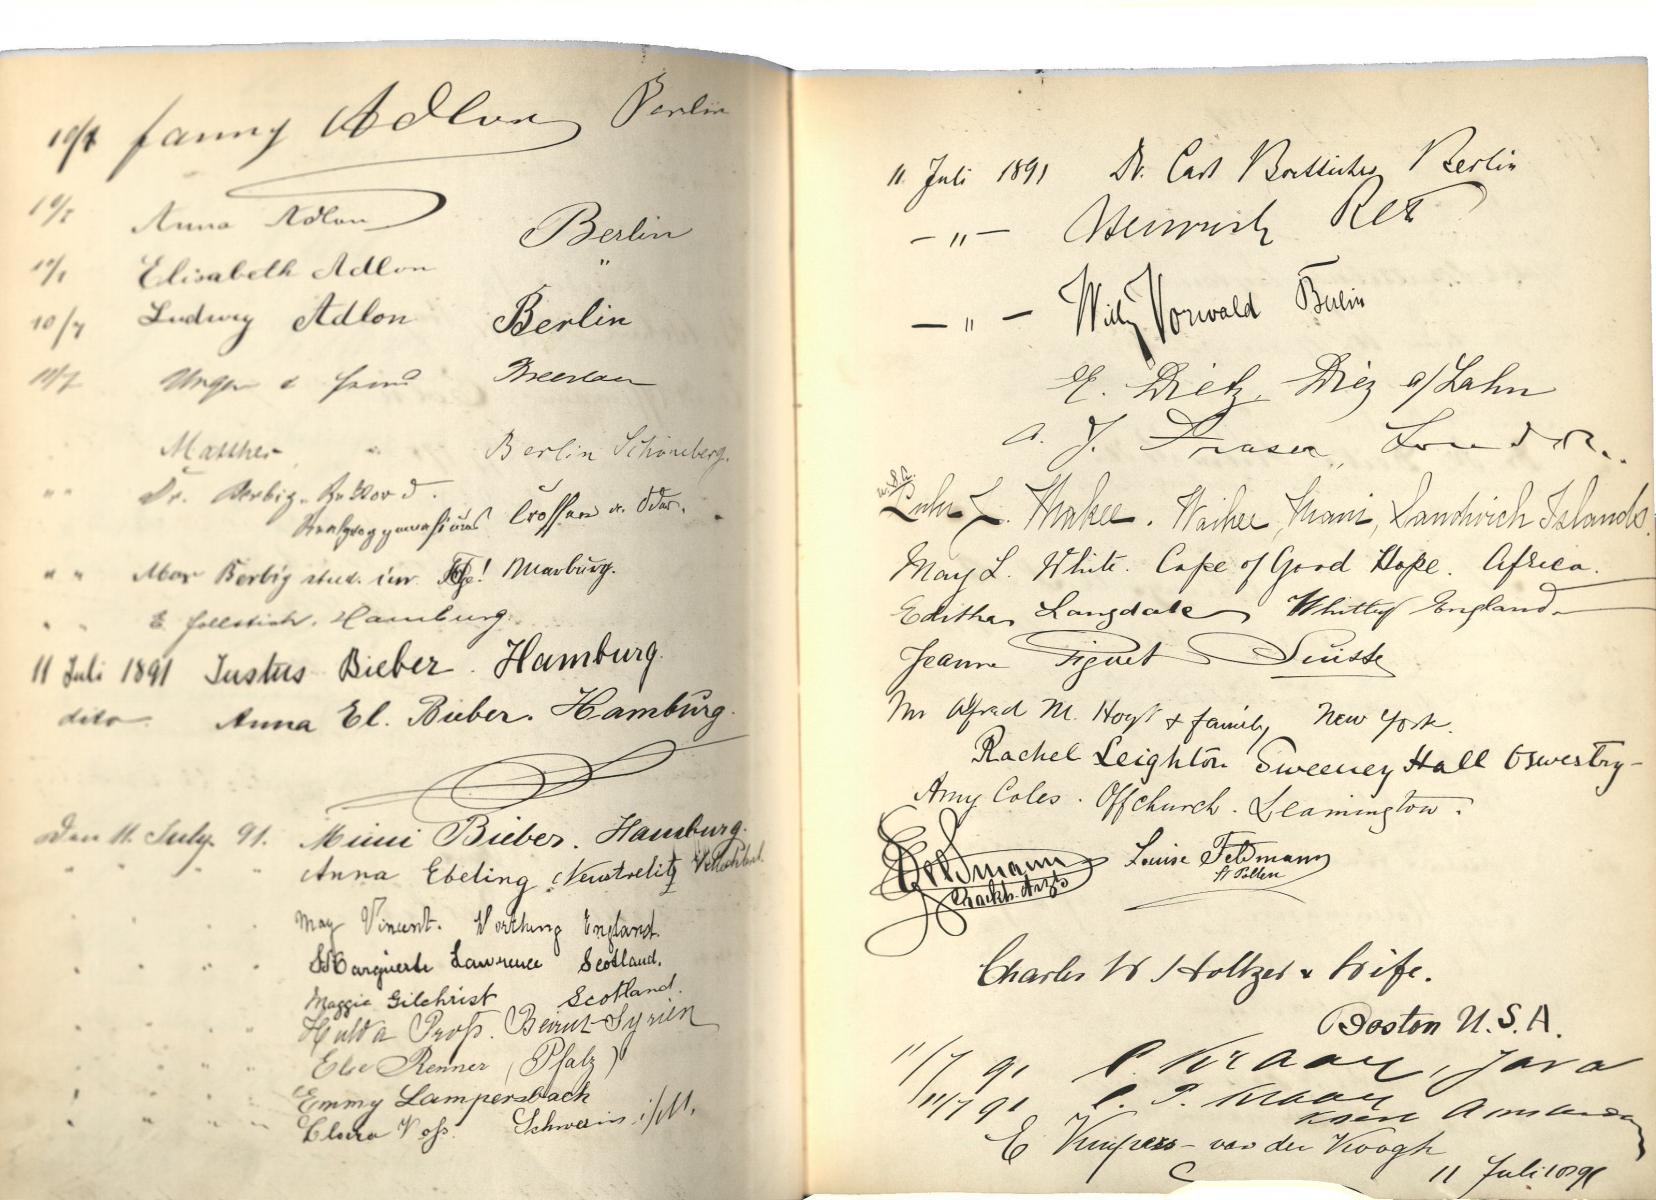 10/7 Fanny Adlon Berlin
10/7 Anna Adlon Berlin
10/7 Elisabeth Adlon "
10/7 Ludwig Adlon Berlin
11/7 Unger & Breslau
Matthes Berlin Schöneberg.
" " Dr. Berbig Crossen a. Oder.
" " Max Berbig stud. iur. Marburg.
" " E. Hamburg.
11 Juli 1891 Justus Bieber. Hamburg.
dito Anna El. Bieber. Hamburg.
Den 11. July. 91. Mimi Bieber. Hamburg.
" " " Anna Ebeling, Neustrelitz
May Vincent. Worthing England.
Marguerite Lawrence Scotland.
Maggie Gilchrist Scotland.
Hulda Beirut-Syrien
Else Renner (Pfalz)
Emmy Lampersbach
Clara Voss. Schwerin i/M.
11. Juli 1891 Dr. Carl Boetticher Berlin
- " - Heinrich
- " - Willy Vorwald Berlin
E. Dietz, Diez a/Lahn
A. J. Fraser, London.
U.S.A.
Lulu L. Makee. Waihee, Maui, Sandwich Islands.
May L. White. Cape of Good Hope. Africa.
Editha Langdale, Whitby England.
Jeanne Piguet Suisse
Mr Alfred M. Hoyt & family New York.
Rachel Leighton Sweeney Hall Oswestry-
Amy Coles. Offchurch. Leamington.
Louise Feldmann
St Pölten
Charles W Holtzer & Wife.
Boston U.S.A.
11/7 91 C. Kraay, Java
11/7 91 C. P. Kraay
E Kuipers- van der Koogh
11 Juli 1891